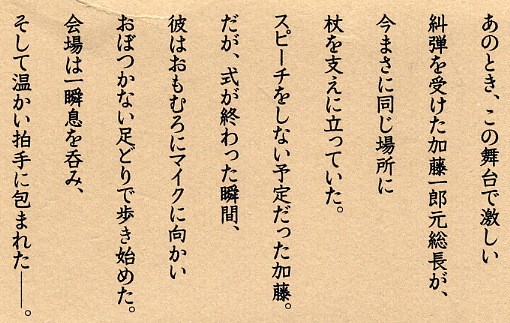 あのとき、この舞台で激しい
糾弾を受けた加藤一郎元総長が、
今まさに同じ場所に
杖を支えに立っていた。
スピーチをしない予定だった加藤。
だが、式が終わった瞬間、
彼はおもむろにマイクに向かい
おぼつかない足どりで歩き始めた。
会場は一瞬息を呑み、
そして温かい拍手に包まれた――。